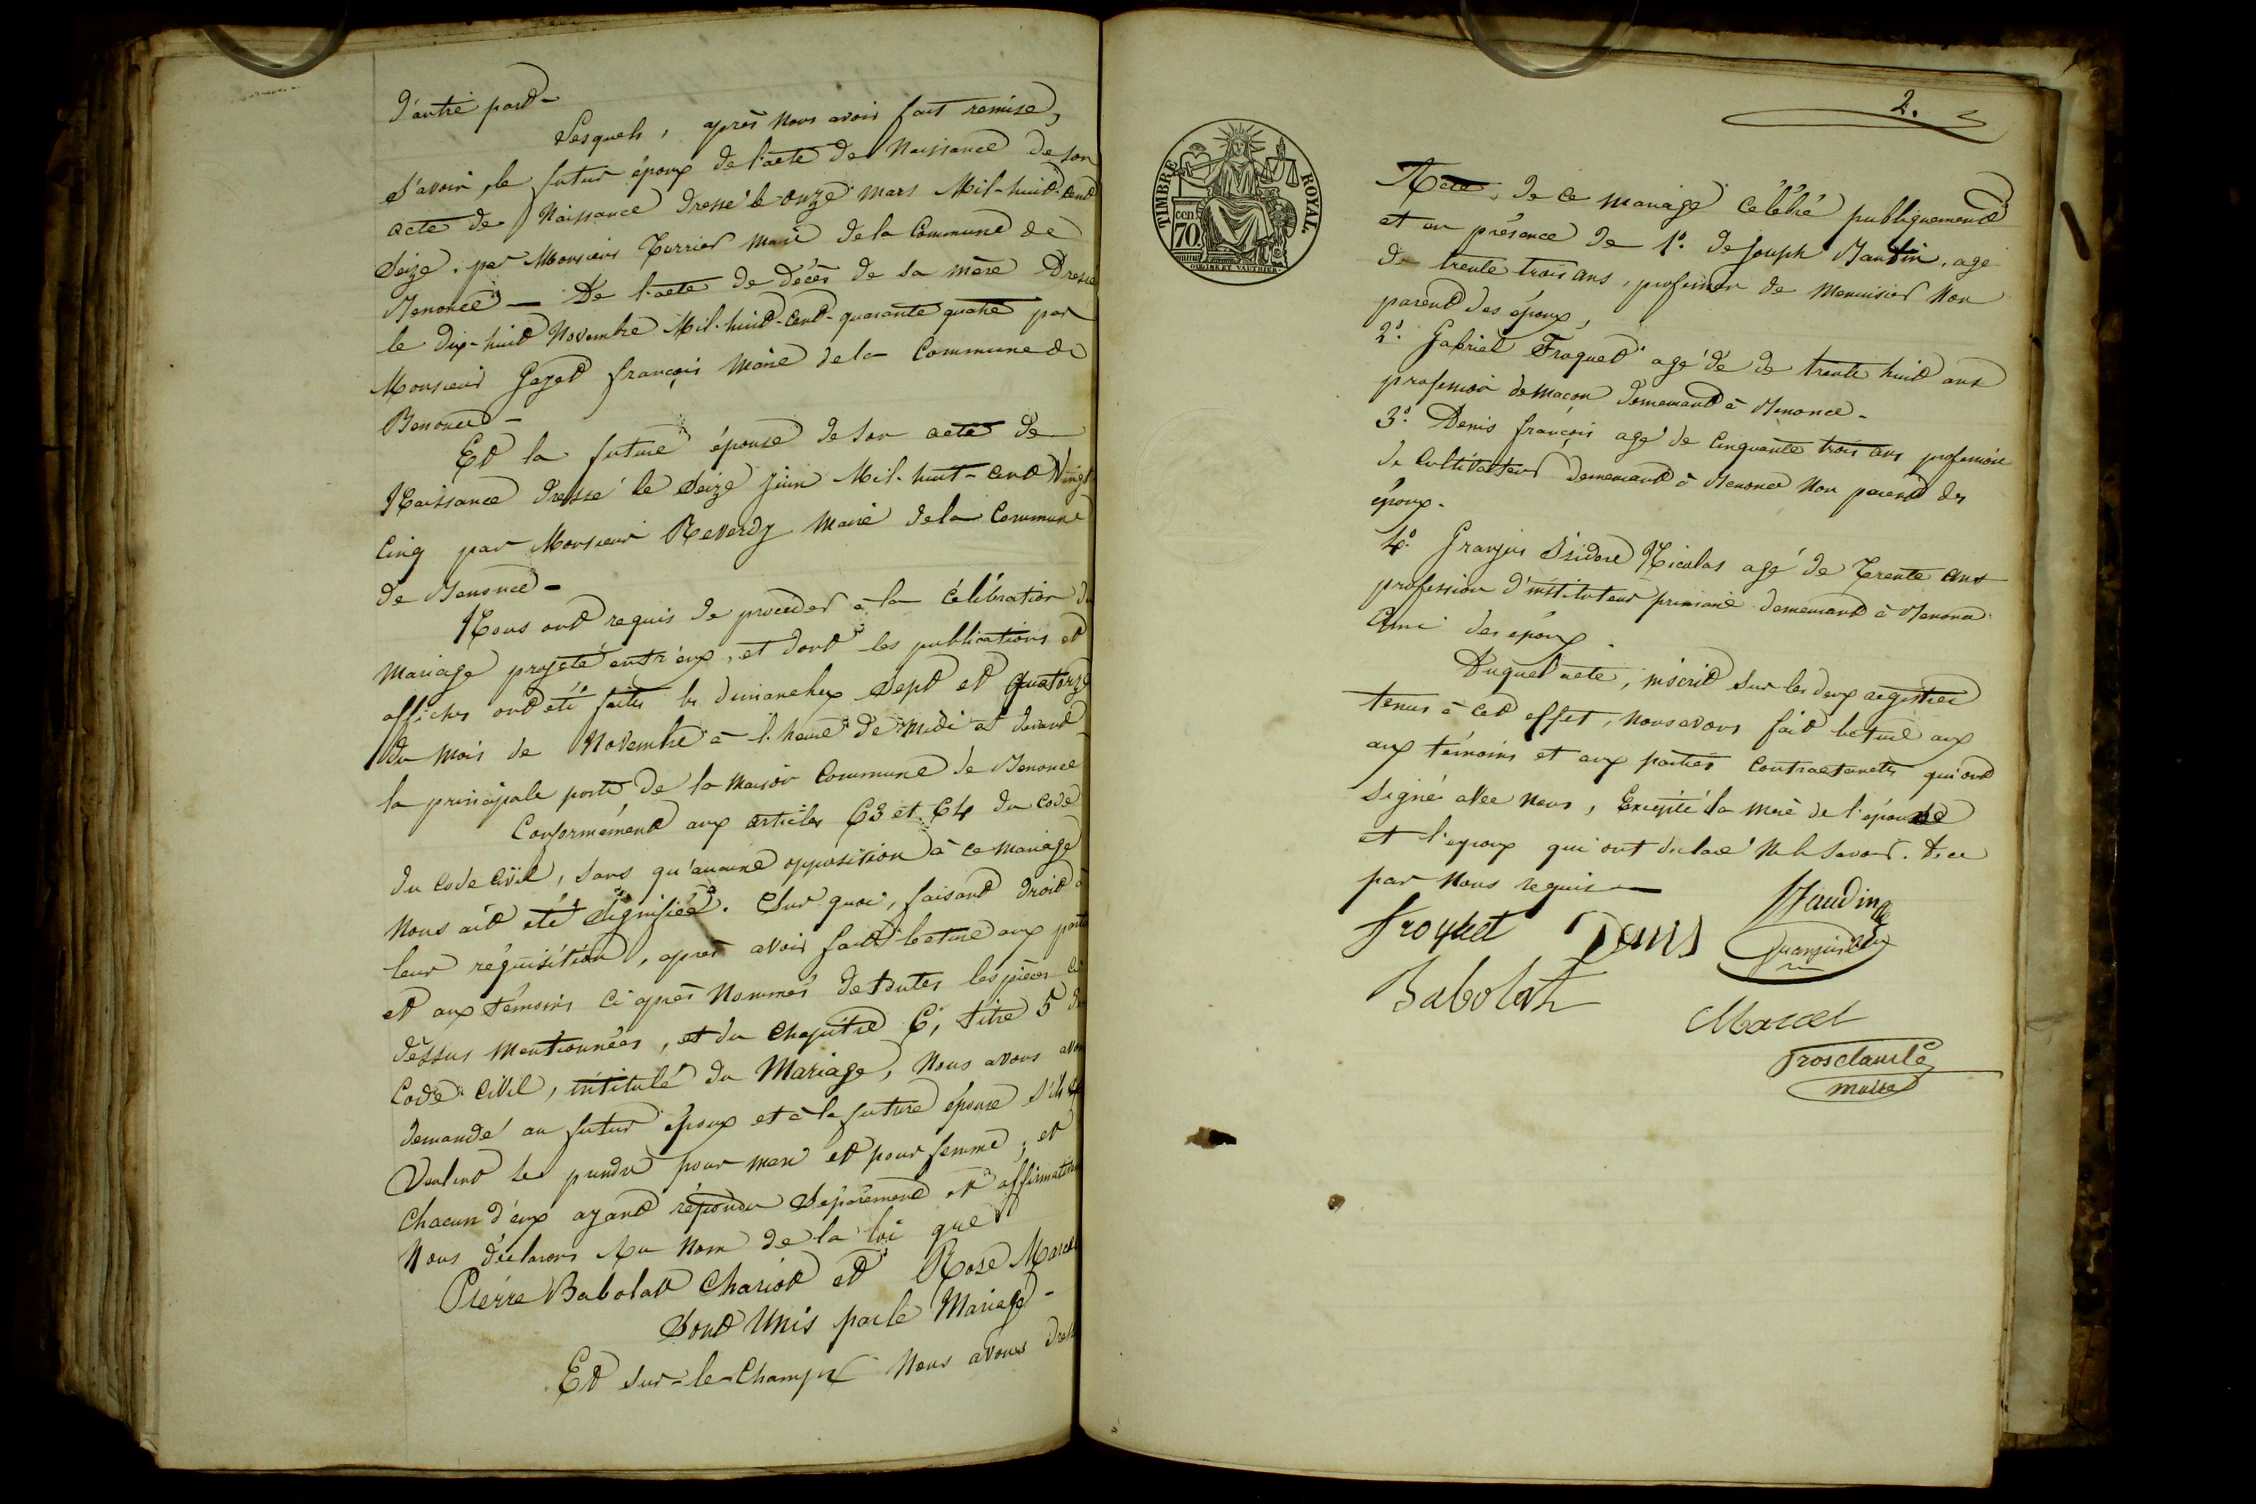 d'autre part -
Lesquels, après nous avoir fait remise,
Savoir, le futur époux de l'acte de Naissance de son
acte de Naissance dressé le onze mars Mil-huit-cent
seize, par Monsieur Terrier maire de la Commune de
Benonce — De l'acte de décès de sa mère Dressé
le dix-huit Novembre Mil-huit-cent-quarante quatre par
Monsieur Gayet françois Maire de la Commune de
Benonce -
Et la future épouse de son acte de
Naissance dressé le seize juin Mil-huit-cent Vingt
Cinq par Monsieur Reverdy Maire de la Commune
de Benonce -
Nous ont requis de procéder à la célébration du
mariage projeté entr'eux, et dont les publications et
affiches ont été faites les dimanches Sept et quatorze
du mois de Novembre à l'heure de midi et devant
la principale porte de la maison Commune de Benonce
Conformément aux articles 63 et 64 du Code
du Code Civil, sans qu'aucune opposition à ce mariage
nous ait été signifiée. Sur quoi, faisant droit à
leur réquisition, après avoir fait lecture aux parties
et aux témoins ci après Nommés de toutes les pièces ci
dessus mentionnées, et du Chapitre 6, titre 5 du
Code Civil, intitulé du Mariage, Nous avons avons
demandé au futur époux et à la future épouse s'ils
veulent se prendre pour mari et pour femme, et
Chacun d'eux ayant répondu séparément et affirmativement
Nous déclarons Au Nom de la loi que
Pierre Babolat Chariot et Rose Marcel
Sont Unis par le Mariage -
Et sur-le-Champ Nous avons dressé
2.
TIMBRE ROYAL
cen 70
Acte, de ce mariage célébré publiquement
et en présence de 1.° de Joseph Baudin, age
de trente trois ans, profession de Menuisier Non
parent des époux,
2.° Gabriel Froquet agé de de trente huit ans
profession de maçon demeurant à Benonce -
3.° Denis françois agé de Cinquante trois ans profession
de Cultivateur demeurant à Benonce Non parent des
époux -
4.° Granjus Isidore Nicolas agé de Trente ans
profession d'instituteur primaire demeurant à Benonce
Ami des époux
Duquel acte, inscrit sur les deux registres
tenus à cet effet, nous avons fait lecture aux
aux témoins et aux parties Contractantes qui ont
signé avec nous, Excepté la mère de l'épouse
et l'époux qui ont déclaré ne le savoir. De ce
par Nous requis —
Froquet Denis Baudin
Babolat
Marcel
maire